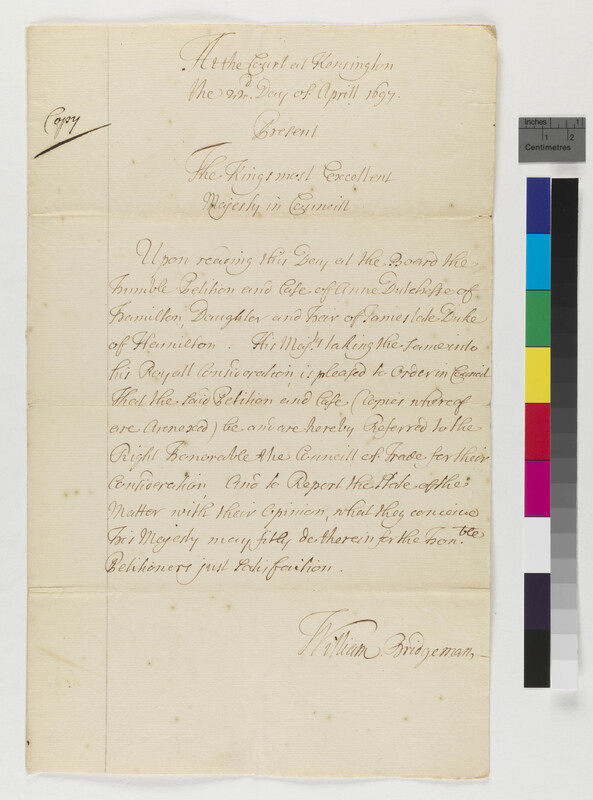 At the Court at Kensington
the 22d. Day of Aprill 1697.
Copy
Present
The Kings most Excellent
Majesty in Councill
Upon reading this Day at the Board the
humble Petition and Case of Anne Dutchesse of
Hamilton, Daughter and Heir of James late Duke
of Hamilton. His Maj.ty taking the same into
his Royall Consideration, is pleased to Order in Council
That the said Petition and Case (Copies whereof
are Annexed) be and are hereby Referred to the
Right Honorable the Councill of Trade for their
Consideration And to Report the State of the
Matter with their Opinion, what they conceive
His Majesty may fitly do therein for the Hon.ble
Petitioners just satisfaction.
William Bridgeman
Inches 1 2
Centimetres